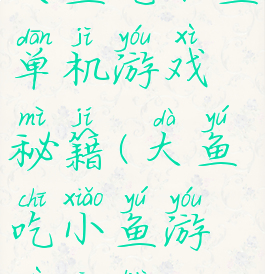 dān jī yóu xì
单机游戏
mì jí dà yú
秘籍(大鱼
chī xiǎo yú yóu
吃小鱼游